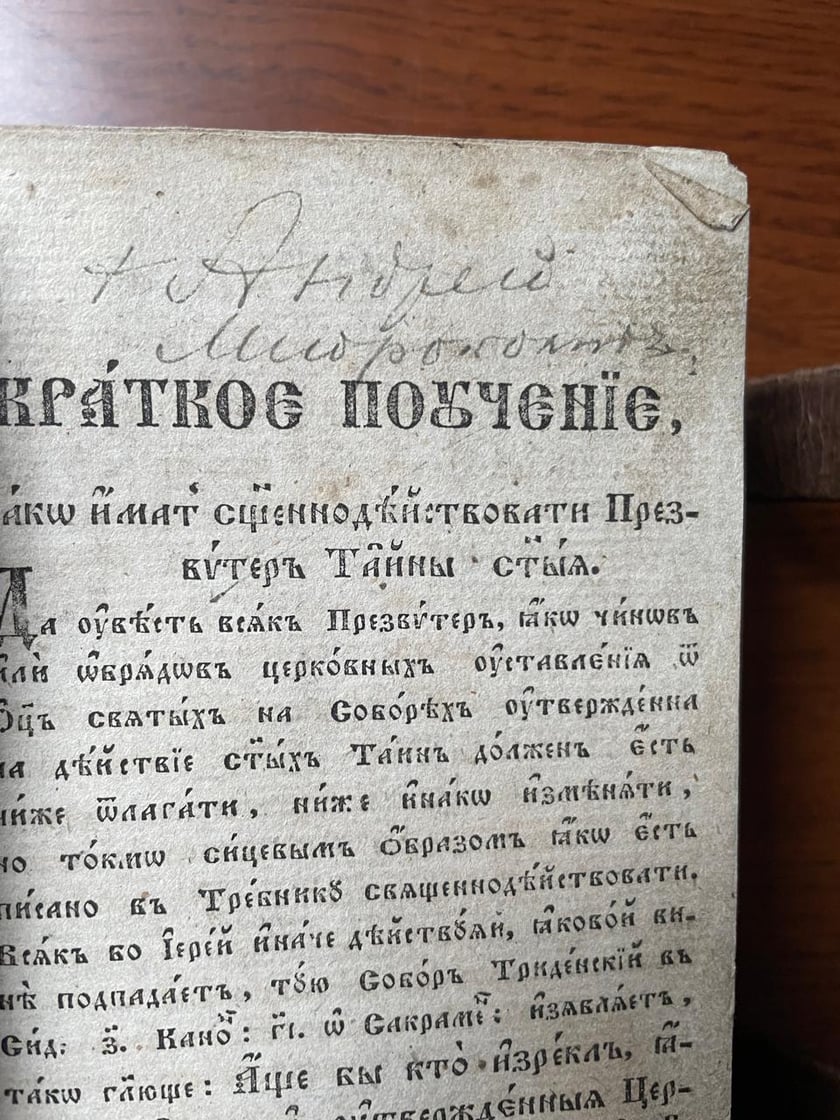 + Андрей
КРА́ТКОЕ ПОꙊЧЕНЇЕ,
ꙗ́кѡ и҆́мат̾ сщ҃еннодѣ́йствовати През-
вѵ́теръ Та̑йны ст҃ы́ѧ.
Да ᲂу҆вѣ́сть всѧ́къ Презвѵ́теръ, ꙗ҆́кѡ чи́нѡвъ
и҆лѝ ѡ҆брѧ́дѡвъ церко́вныхъ ᲂу҆ставле́нїѧ ѿ
Ѻ҆ц҃ъ святы́хъ на Собо́рѣхъ ᲂу҆твержде́нна
на дѣ́йствїе ст҃ы́хъ Та́инъ до́лженъ є҆́сть
ни́же ѿлага́ти, ни́же и҆на́кѡ и҆змѣнѧ́ти,
но то́кмѡ си́цевымъ ѻ҆́бразомъ ꙗ҆́кѡ є҆́сть
пи́сано въ Тре́бникꙋ свѧщеннодѣ́йствовати.
Всѧ́къ бо І҆ере́й и҆на́че дѣ́йствꙋѧй, ꙗ҆ково́й ви-
нѣ̀ подпада́етъ, то́ю Собо́ръ Триде́нскїй въ
Сид: з҃. Кано: г҃і. ѡ҆ Сакраме: и҆з̾ѧвлѧ́етъ,
та́кѡ гл҃юще: А҆́ще бы кто̀ и҆зре́клъ, ꙗ҆́-
ᲂу҆твержде́нныѧ Цер-